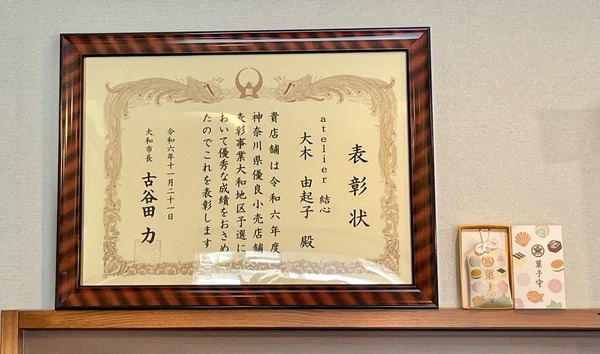 表彰状
atelier 結心
大木 由起子 殿
貴店舗は令和六年度
神奈川県優良小売店舗
表彰事業大和地区予選に
おいて優秀な成績をおさめ
たのでこれを表彰します
令和六年十一月二十一日
大和市長 古谷田 力
菓子守
菓子守